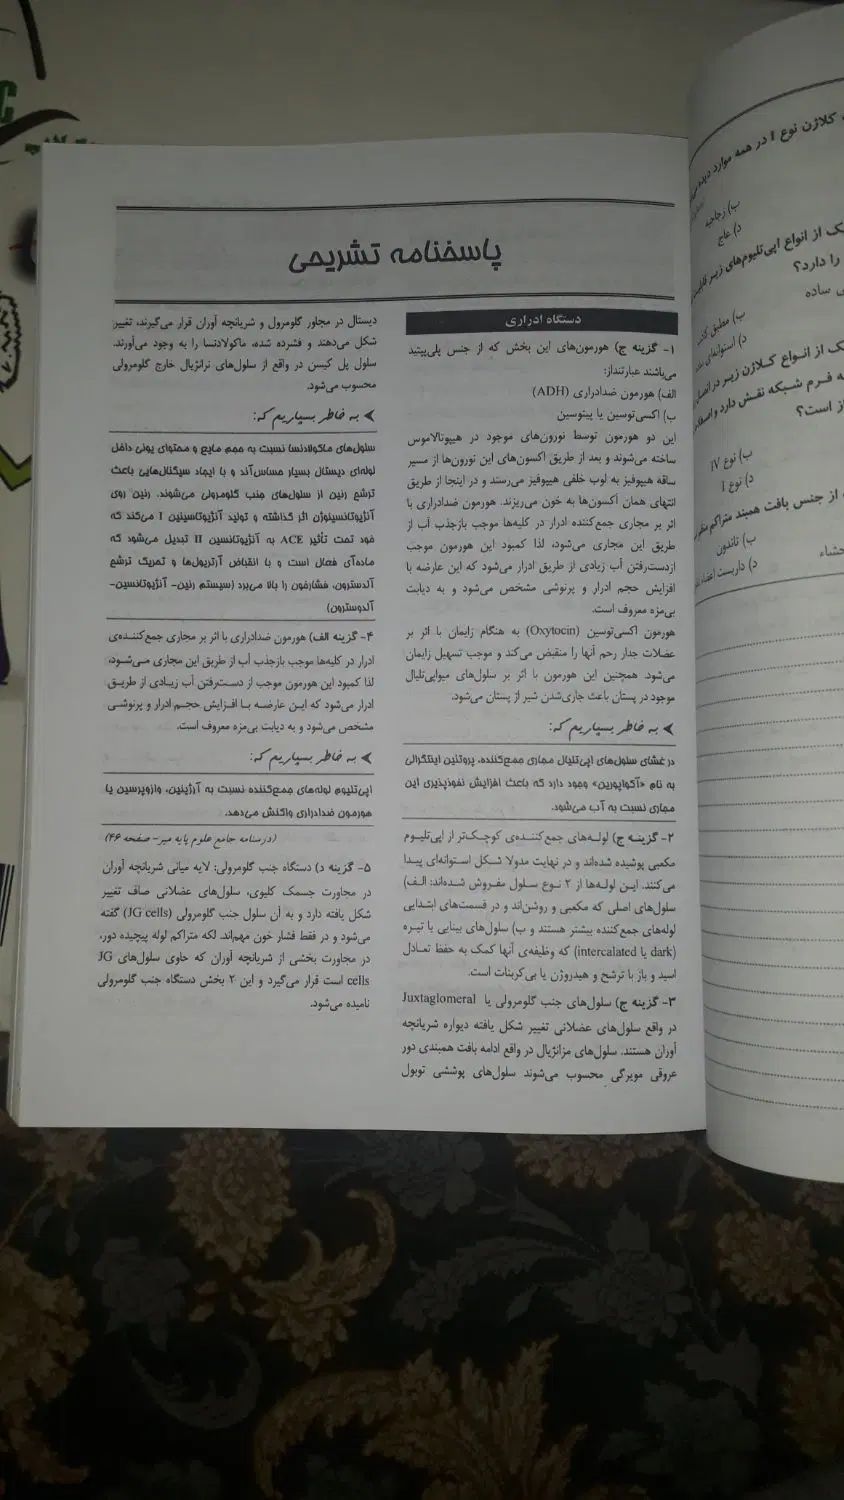 پاسخنامه تشریحی
دستگاه ادراری
۱- گزینه ج) هورمون‌های این بخش که از جنس پلی‌پپتید
می‌باشند عبارتنداز:
الف) هورمون ضدادراری (ADH)
ب) اکسی‌توسین یا پیتوسین
این دو هورمون توسط نورون‌های موجود در هیپوتالاموس
ساخته می‌شوند و بعد از طریق اکسون‌های این نورون‌ها از مسیر
ساقه هیپوفیز به لوب خلفی هیپوفیز می‌رسند و در اینجا از طریق
انتهای همان آکسون‌ها به خون می‌ریزند. هورمون ضدادراری با
اثر بر مجاری جمع‌کننده ادرار در کلیه‌ها موجب بازجذب آب از
طریق این مجاری می‌شود، لذا کمبود این هورمون موجب
ازدست‌رفتن آب زیادی از طریق ادرار می‌شود که این عارضه با
افزایش حجم ادرار و پرنوشی مشخص می‌شود و به دیابت
بی‌مزه معروف است.
هورمون اکسی‌توسین (Oxytocin) به هنگام زایمان با اثر بر
عضلات جدار رحم آنها را منقبض می‌کند و موجب تسهیل زایمان
می‌شود. همچنین این هورمون با اثر بر سلول‌های میواپی‌تلیال
موجود در پستان باعث جاری‌شدن شیر از پستان می‌شود.
به خاطر بسپاریم که:
در غشای سلول‌های اپی‌تلیال مجاری جمع‌کننده، پروتئین اینتگرالی
به نام «آکواپورین» وجود دارد که باعث افزایش نفوذپذیری این
مجاری نسبت به آب می‌شود.
۲- گزینه ج) لوله‌های جمع‌کننده‌ی کوچک‌تر از اپی‌تلیوم
مکعبی پوشیده شده‌اند و در نهایت مدولا شکل استوانه‌ای پیدا
می‌کنند. این لوله‌ها از ۲ نوع سلول مفروش شده‌اند: الف)
سلول‌های اصلی که مکعبی و روشن‌اند و در قسمت‌های ابتدایی
لوله‌های جمع‌کننده بیشتر هستند و ب) سلول‌های بینابی یا تیره
(dark یا intercalated) که وظیفه‌ی آنها کمک به حفظ تعادل
اسید و باز با ترشح و هیدروژن یا بی‌کربنات است.
۳- گزینه ج) سلول‌های جنب گلومرولی یا Juxtaglomeral
در واقع سلول‌های عضلانی تغییر شکل یافته دیواره شریانچه
آوران هستند. سلول‌های مزانژیال در واقع ادامه بافت همبندی دور
عروقی مویرگی محسوب می‌شوند سلول‌های پوششی توبول
دیستال در مجاور گلومرول و شریانچه آوران قرار می‌گیرند، تغییر
شکل می‌دهند و فشرده شده، ماکولادنسا را به وجود می‌آورند.
سلول پل کیسن در واقع از سلول‌های نرانژیال خارج گلومرولی
محسوب می‌شود.
به خاطر بسپاریم که:
سلول‌های ماکولادنسا نسبت به حجم مایع و محتوای یونی داخل
لوله‌ای دیستال بسیار حساس‌اند و با ایجاد سیگنال‌هایی باعث
ترشح رنین از سلول‌های جنب گلومرولی می‌شوند. رنین روی
آنژیوتانسینوژن اثر گذاشته و تولید آنژیوتانسینین I می‌کند که
خود تحت تأثیر ACE به آنژیوتانسین II تبدیل می‌شود که
ماده‌ای فعال است و با انقباض آرتریول‌ها و تحریک ترشح
آلدسترون، فشارخون را بالا می‌برد (سیستم رنین- آنژیوتانسین-
آلدوسترون)
۴- گزینه الف) هورمون ضدادراری با اثر بر مجاری جمع‌کننده‌ی
ادرار در کلیه‌ها موجب بازجذب آب از طریق این مجاری می‌شود،
لذا کمبود این هورمون موجب از دست‌رفتن آب زیادی از طریق
ادرار می‌شود که این عارضه با افزایش حجم ادرار و پرنوشی
مشخص می‌شود و به دیابت بی‌مزه معروف است.
به خاطر بسپاریم که:
اپی‌تلیوم لوله‌های جمع‌کننده نسبت به آرژینین، وازوپرسین یا
هورمون ضدادراری واکنش می‌دهد.
(درسنامه جامع علوم پایه میر- صفحه ۴۶)
۵- گزینه د) دستگاه جنب گلومرولی: لایه میانی شریانچه آوران
در مجاورت جسمک کلیوی، سلول‌های عضلانی صاف تغییر
شکل یافته دارد و به آن سلول جنب گلومرولی (JG cells) گفته
می‌شود و در فقط فشار خون مهم‌اند. لکه متراکم لوله پیچیده دور،
در مجاورت بخشی از شریانچه آوران که حاوی سلول‌های JG
cells است قرار می‌گیرد و این ۲ بخش دستگاه جنب گلومرولی
نامیده می‌شود.
کلاژن نوع I در همه موارد دیده
ب) زجاجیه
د) عاج
یک از انواع اپی‌تلیوم‌های زیر
را دارد؟
ساده
ب) مطبق
د) استوانه‌ای
یک از انواع کلاژن زیر در
به فرم شبکه نقش دارد و
از است؟
ب) نوع IV
د) نوع I
از جنس بافت همبند متراکم
ب) تاندون
د) داربست
احشاء